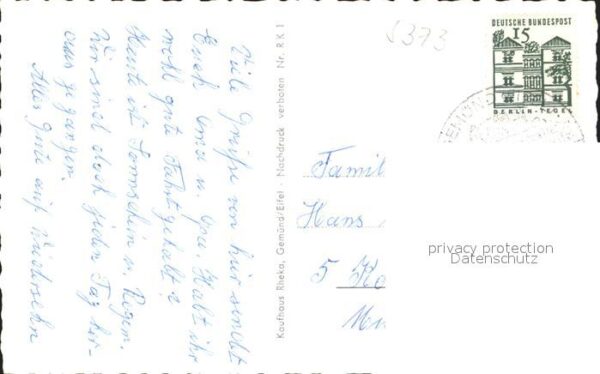 Viele Grüße von hier sendet
Euch Oma u. Opa. Habt ihr
wohl gute Fahrt gehabt?
Heute ist Sonnschein u. Regen.
Wir sind doch jeden Tag her-
aus gegangen.
Alles gute auf Wiedersehn
Kaufhaus Rheka, Gemünd/Eifel Nachdruck verboten Nr. RK 1
5373
DEUTSCHE BUNDESPOST
15
BERLIN-TEGEL
Famil
Hans
5 Kö
privacy protection
Datenschutz